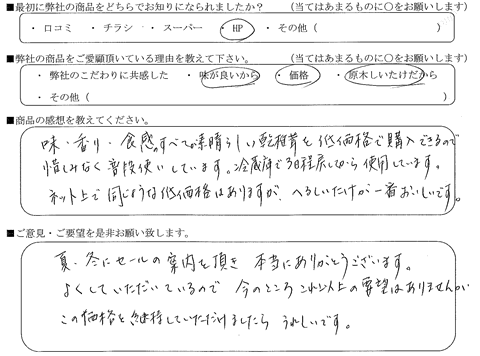 ■最初に弊社の商品をどちらでお知りになられましたか？　（当てはあまるものに○をお願いします）
・ 口コミ　・ チラシ　・ スーパー　・ HP　・ その他（　　　　　　　　）
■弊社の商品をご愛顧頂いている理由を教えて下さい。　（当てはあまるものに○をお願いします）
・ 弊社のこだわりに共感した　・ 味が良いから　・ 価格　・ 原木しいたけだから
・ その他（　　　　　　　　　　　　　　　　）
■商品の感想を教えてください。
味・香り・食感。すべてが素晴らしい乾椎茸を低価格で購入できるので
惜しみなく普段使いしています。冷蔵庫で3日程戻してから使用しています。
ネット上で同じような低価格はありますが、しいたけが一番おいしいです。
■ご意見・ご要望を是非お願い致します。
夏・冬にセールの案内を頂き 本当にありがとうございます。
よくしていただいているので 今のところこれ以上の要望はありませんが
この価格を継持していただけましたら うれしいです。